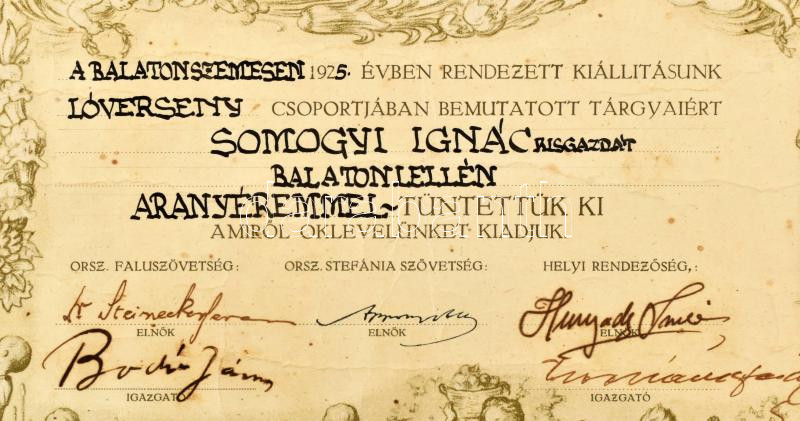 A BALATONSZEMESEN 1925. ÉVBEN RENDEZETT KIÁLLITÁSUNK
LÓVERSENY CSOPORTJÁBAN BEMUTATOTT TÁRGYAIÉRT
SOMOGYI IGNÁC KISGAZDÁT
BALATONLELLÉN
ARANYÉREMMEL TÜNTETTÜK KI
AMIRŐL OKLEVELÜNKET KIADJUK.
ORSZ. FALUSZÖVETSÉG: ORSZ. STEFÁNIA SZÖVETSÉG: HELYI RENDEZŐSÉG,:
Dr Steinecker Ferenc Hunyady Imre
ELNÖK ELNÖK ELNÖK
Bodór János
IGAZGATÓ IGAZGATÓ